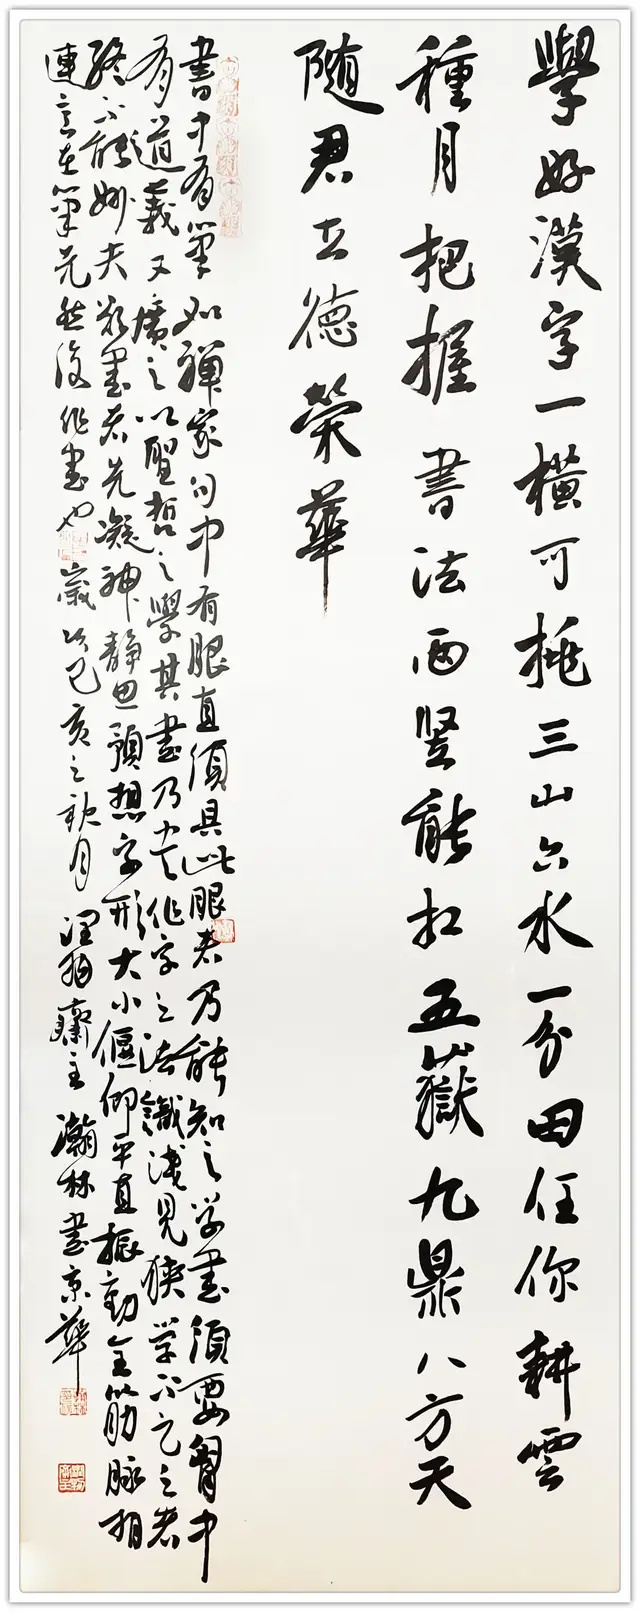 學好漢字一橫可挑三山六水一分田任你耕雲
種月把握書法两竖能扛五嶽九鼎八方天
随君立德榮華
書中有筆如禪家句中有眼直須具此眼者乃能知之学書須要胷中
有道義又廣之以聖哲之學其書乃作字之法識淺見狭学不足之者
終不能妙夫欲書者先凝神靜思預想字形大小偃仰平直振動令筋脉相
連意在筆先然後作書也歲次己亥之秋月齋主瀚林書京華